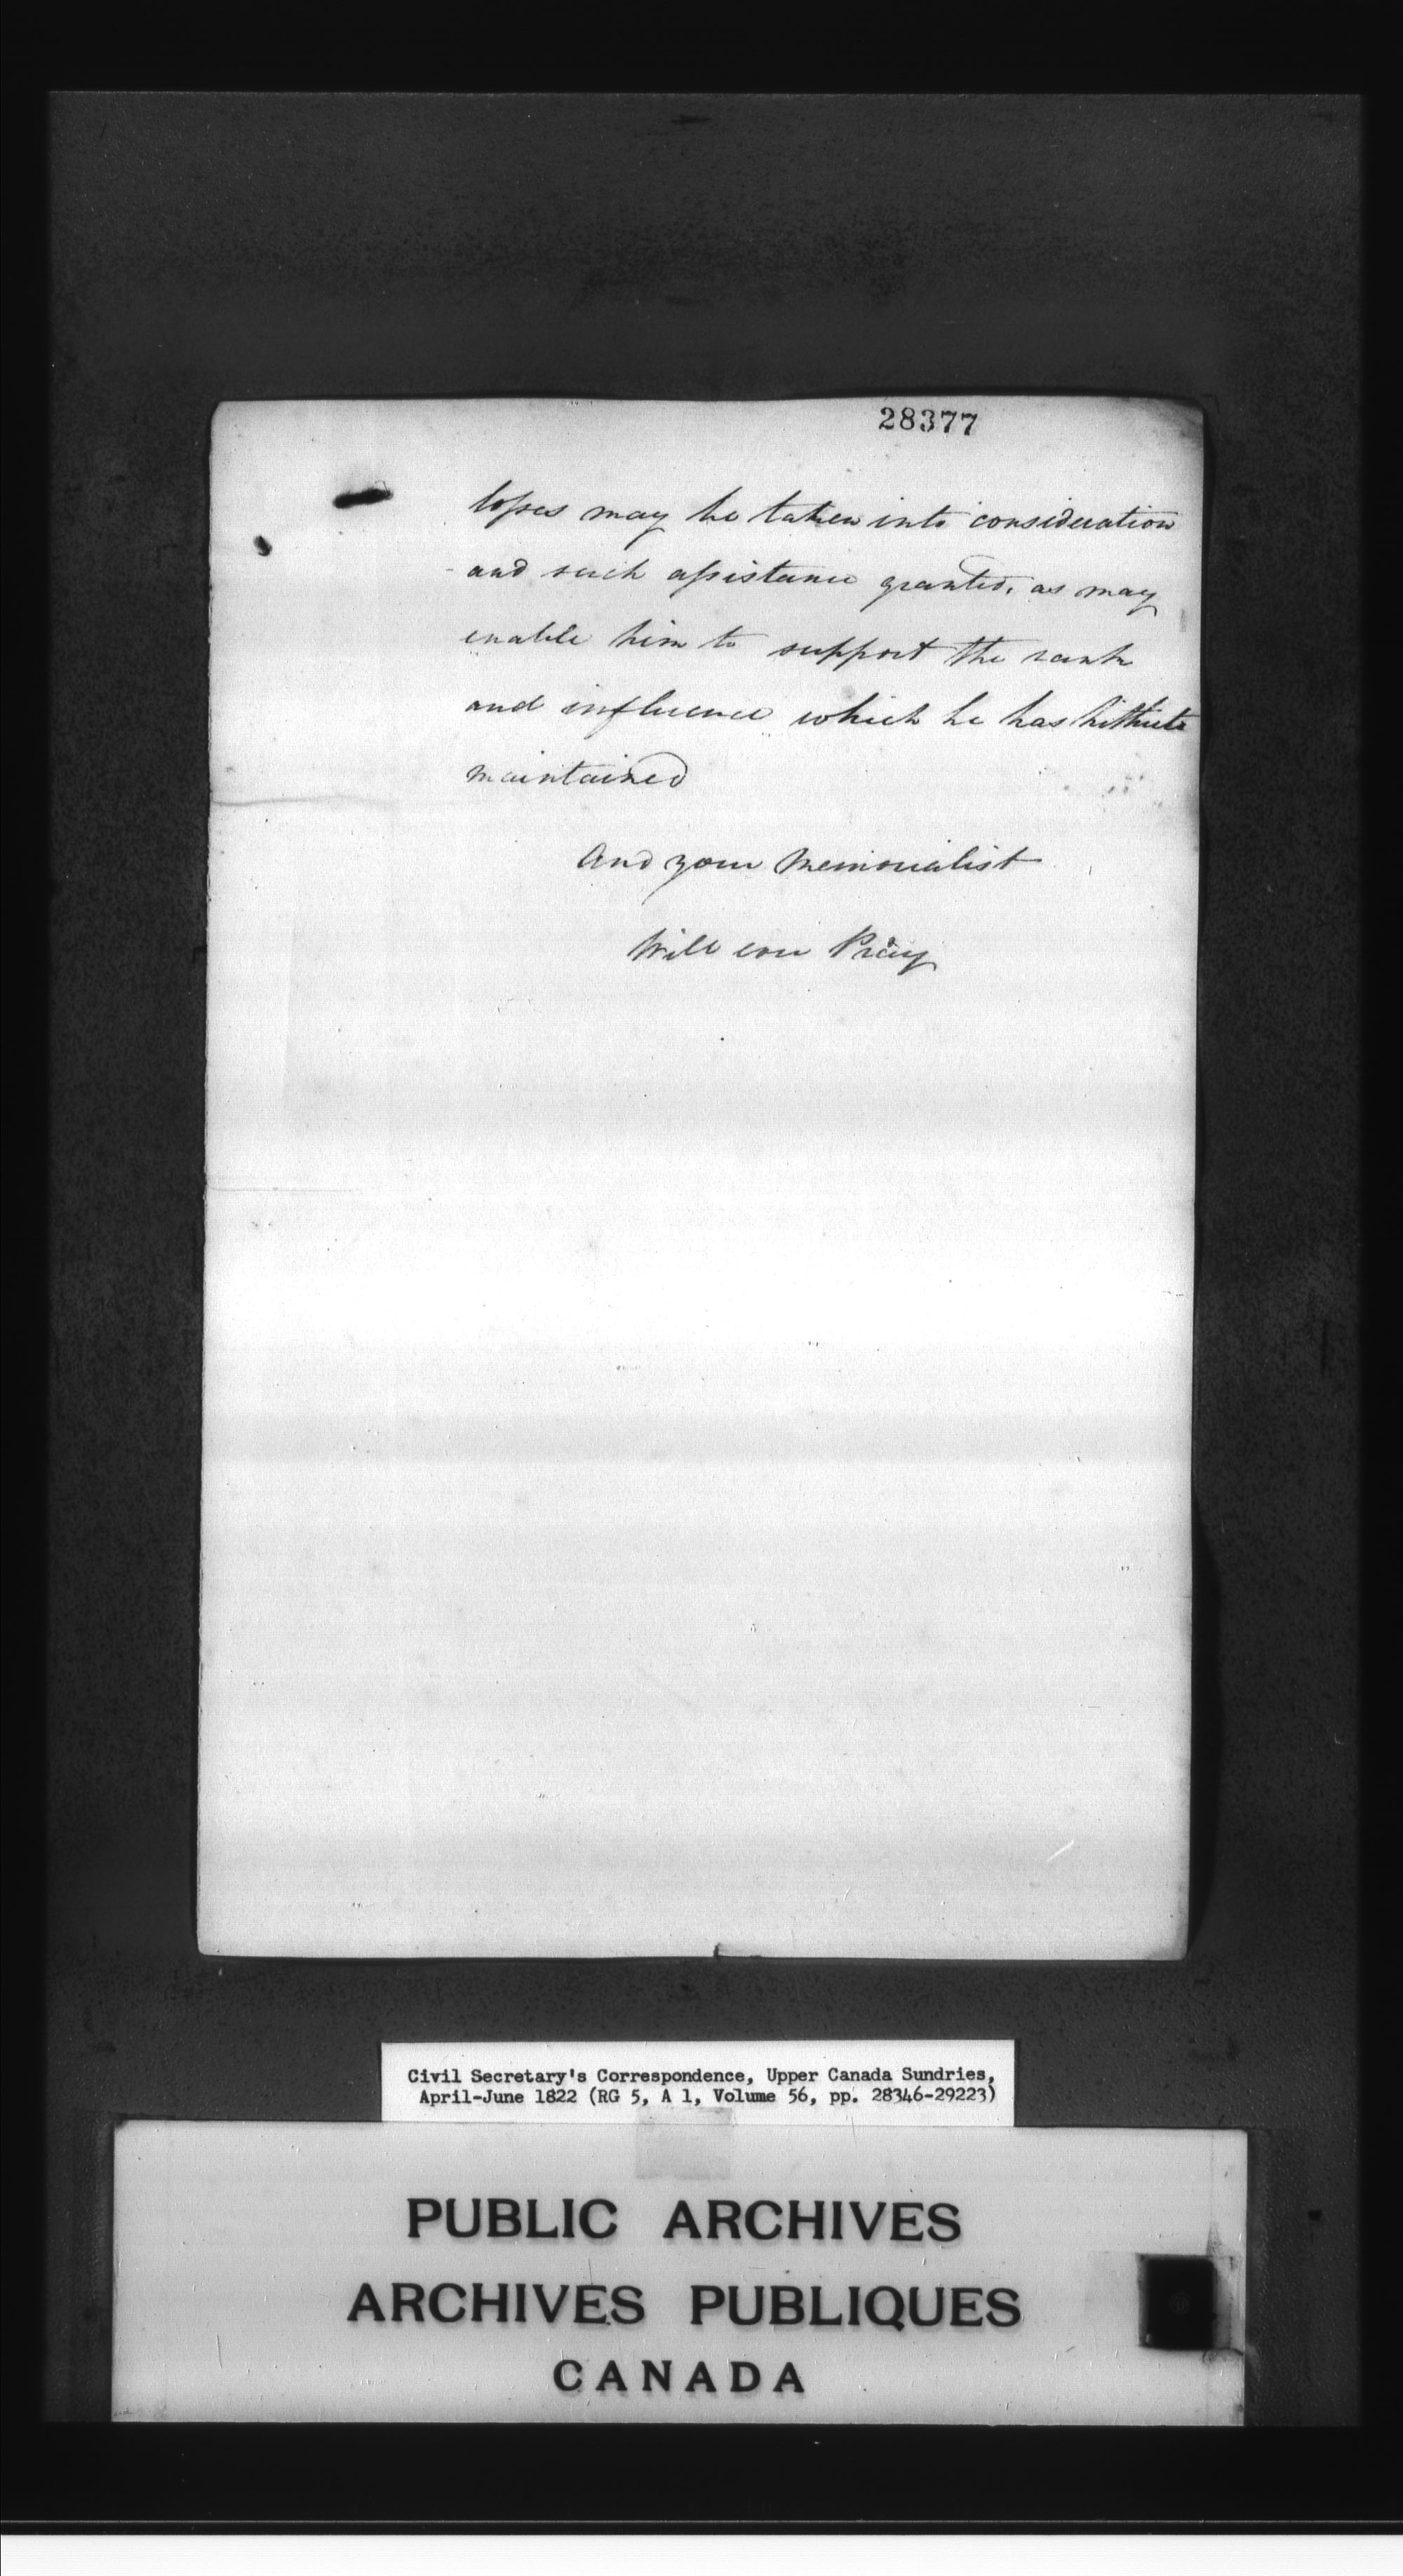 28377
losses may be taken into consideration
and such assistance granted, as may
enable him to support the rank
and influence which he has hitherto
maintained
And your Memorialist
Will ever Pray
Civil Secretary's Correspondence, Upper Canada Sundries,
April-June 1822 (RG 5, A 1, Volume 56, pp. 28346-29223)
PUBLIC ARCHIVES
ARCHIVES PUBLIQUES
CANADA